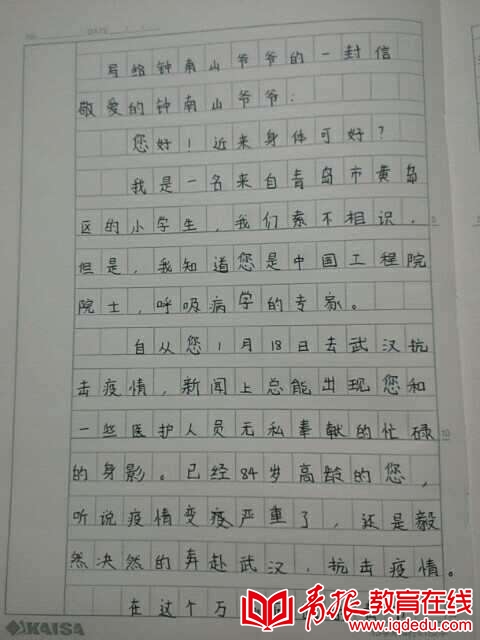 DATE
写给钟南山爷爷的一封信
敬爱的钟南山爷爷：
您好！近来身体可好？
我是一名来自青岛市黄岛
区的小学生，我们素不相识，
但是，我知道您是中国工程院
院士，呼吸病学的专家。
自从您1月18日去武汉抗
击疫情，新闻上总能出现您和
一些医护人员无私奉献的忙碌
的身影。已经84岁高龄的您，
听说疫情变疫严重了，还是毅
然决然的奔赴武汉，抗击疫情。
在这个万
KAISA
青报教育在线
www.iqdedu.com